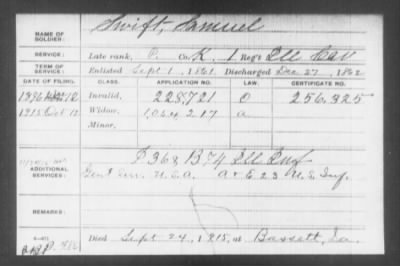 NAME OF SOLDIER: Swift, Samuel
SERVICE: Late rank, P. Co. K, 1 Reg't Ill Cav
TERM OF SERVICE: Enlisted Sept 1, 1861. Discharged Dec 27, 1862
DATE OF FILING. CLASS. APPLICATION NO. LAW. CERTIFICATE NO.
12 Invalid, 228.721 O 256.325
1915 Oct 12 Widow, 1,054,217 a
Minor,
ADDITIONAL SERVICES: F 36 & B 74 Ill Inf
Gen'l Serv. U.S.A. A & E 23 U.S. Inf.
REMARKS:
Died Sept 24, 1915, at Bassett, Ia.